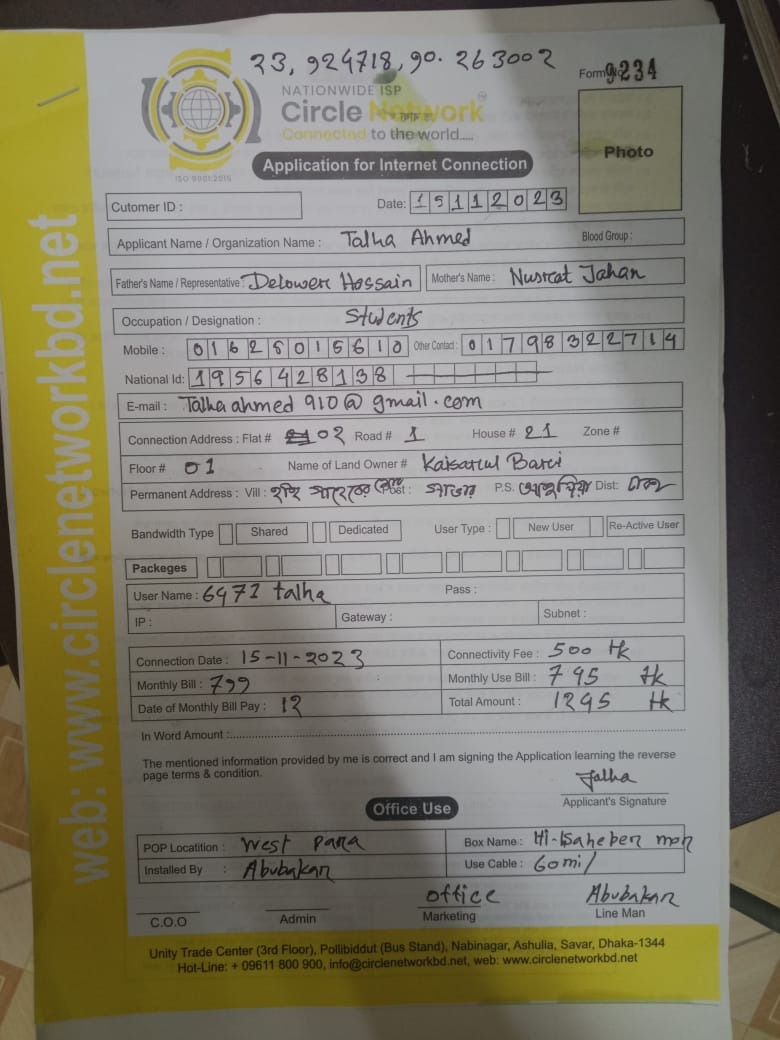 23, 924718, 90. 263002
Form No 9234
NATIONWIDE ISP
Circle Network
Connected to the world.....
ISO 9001:2015
Photo
Application for Internet Connection
Cutomer ID :
Date: 15112023
Applicant Name / Organization Name : Talha Ahmed Blood Group :
Father's Name / Representative : Delower Hossain Mother's Name : Nusrat Jahan
Occupation / Designation : Students
Mobile : 01626015610 Other Contact : 01798322714
National Id: 1956428138
E-mail : Talha ahmed 910@ gmail.com
Connection Address : Flat # 02 Road # 1 House # 21 Zone #
Floor # 01 Name of Land Owner # Kaisarul Bari
Permanent Address : Vill : Post : সাভার P.S. আশুলিয়া Dist: ঢাকা
Bandwidth Type Shared Dedicated User Type : New User Re-Active User
Packeges
User Name : 6971 talha Pass :
IP : Gateway : Subnet :
Connection Date : 15-11-2023 Connectivity Fee : 500 tk
Monthly Bill : 799 Monthly Use Bill : 795 tk
Date of Monthly Bill Pay : 12 Total Amount : 1295 tk
In Word Amount :
The mentioned information provided by me is correct and I am signing the Application learning the reverse
page terms & condition.
Talha
Applicant's Signature
Office Use
POP Locatition : West para Box Name :
Installed By : Abubakar Use Cable : 60 mil
office Abubakar
C.O.O Admin Marketing Line Man
Unity Trade Center (3rd Floor), Pollibiddut (Bus Stand), Nabinagar, Ashulia, Savar, Dhaka-1344
Hot-Line: + 09611 800 900, info@circlenetworkbd.net, web: www.circlenetworkbd.net
web: www.circlenetworkbd.net